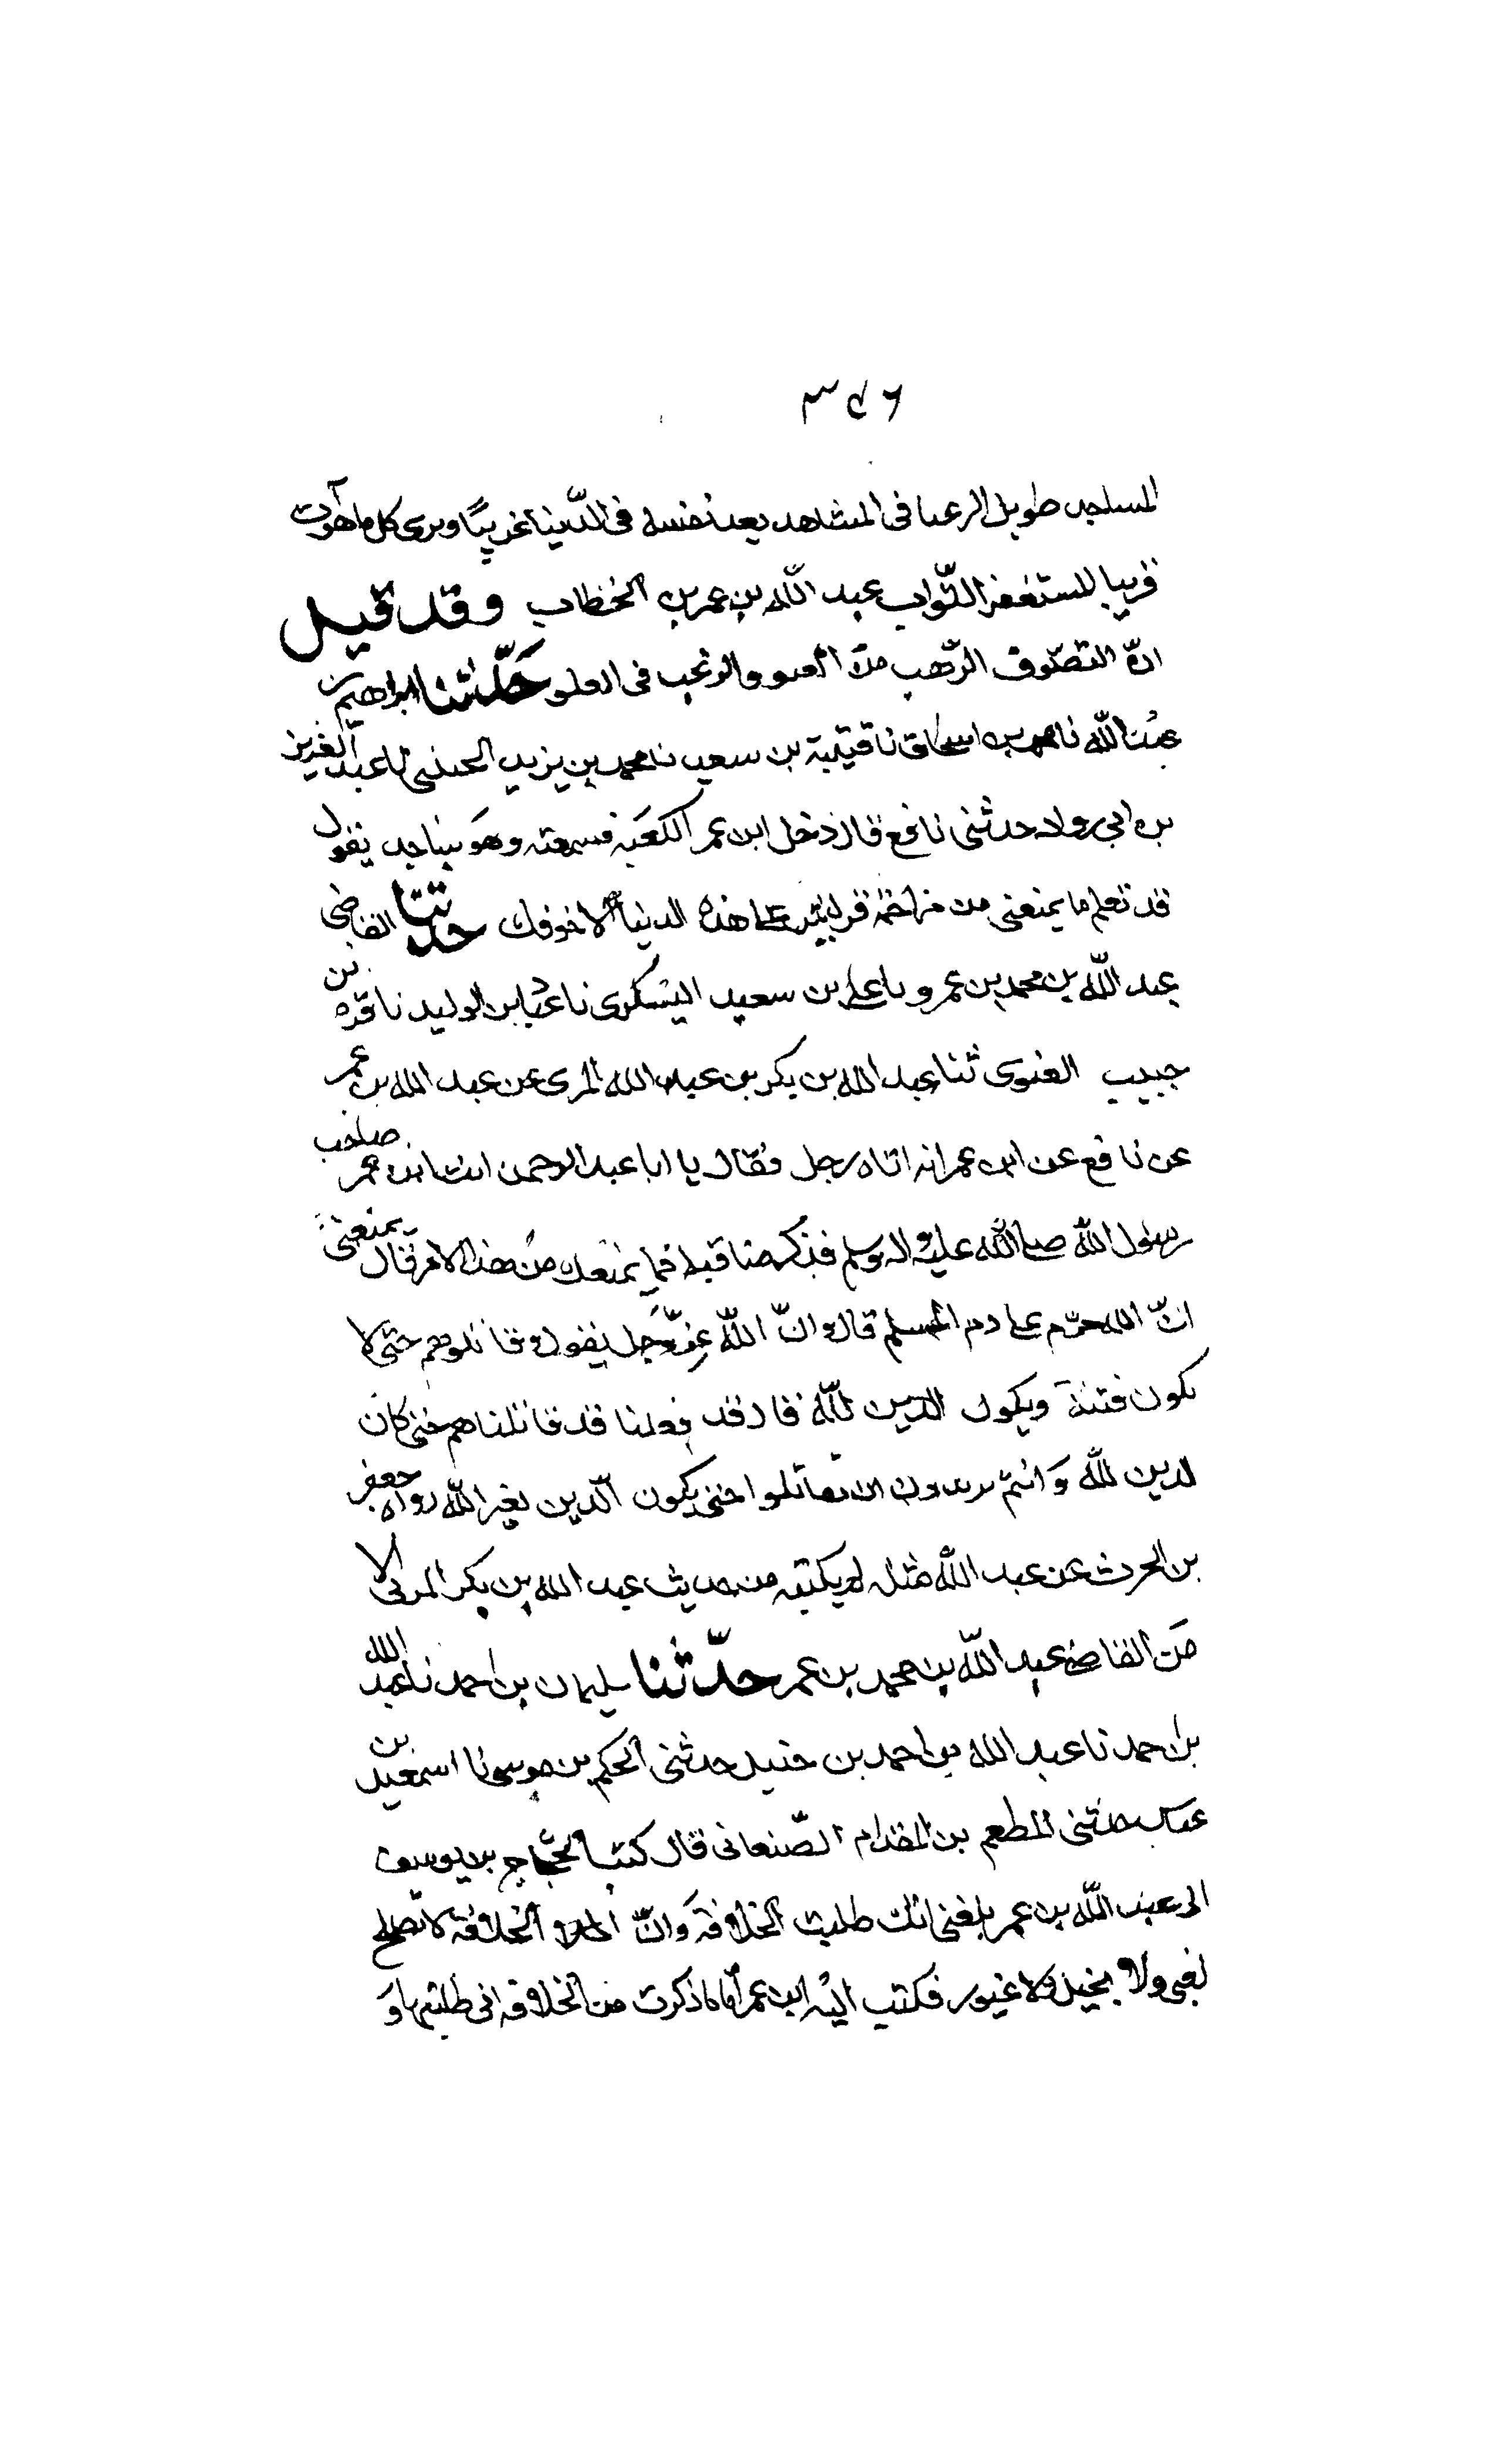 ٣٥٦
المساجد طويل الرعنا في المشاهد يعد نفسه في الدّنيا غريبًا ويرى كل ما هو آت
قريبا المستغفر التّواب عبد الله بن عمر بن الخطاب وقد قيل
انّ التصوّف الرّهب من العنو والرغب في العلو حَدّثنا ابراهيم بن
عبد الله نا محمد بن اسحاق نا قتيبة بن سعيد نا محمد بن يزيد الحنسى نا عبد العزيز
بن ابي رواد حدثني نافع قال دخل ابن عمر الكعبة فسمعته وهو ساجد يقول
قد تعلم ما يمنعني من مزاحمة قريش على هذه الدنيا الا خوفك حدثنا القاضي
عبد الله بن محمد بن عمر وبا علي بن سعيد اليشكري نا عباد بن الوليد نا قره بن
حبيب الغنوي ثنا عبد الله بن بكر بن عبد الله المزي عن عبد الله بن عمر
عن نافع عن ابن عمر انه اتاه رجل فقال يا ابا عبد الرحمن انت ابن عمر صاحب
رسول الله صلى الله عليه واله وسلم فذكر مناقبه فما يمنعك من هذا الامر قال يمنعني
انّ الله حرّم على دم المسلم قال وانّ الله عزّ وجل يقول وقاتلوهم حتى لا
تكون فتنة ويكون الدين لله فقال قد فعلنا قد قاتلناهم حتى كان
لدين لله وَانتم تريدون ان تقاتلوا حتى يكون الدين لغير الله رواه جعفر
بن الحرث عن عبد الله مثله لم يكتبه من حديث عبد الله بن بكر المزني الا
من القاضي عبد الله بن محمد بن عمر حدّثنا سليمان بن احمد نا عبد الله
بن احمد نا عبد الله بن احمد بن حنبل حدثني الحكم بن موسى نا اسمعيل بن
عياش حدثني المطعم بن المقدام الصّنعاني قال كتب الحجّاج بن يوسف
الى عبد الله بن عمر بلغني انك طلبت الخلافة وَانّ الخلافة لا تصلح
لغبي ولا بخيل ولا غيور فكتب اليه ابن عمر أمّا ما ذكرت من الخلافة اني طلبتها وَ